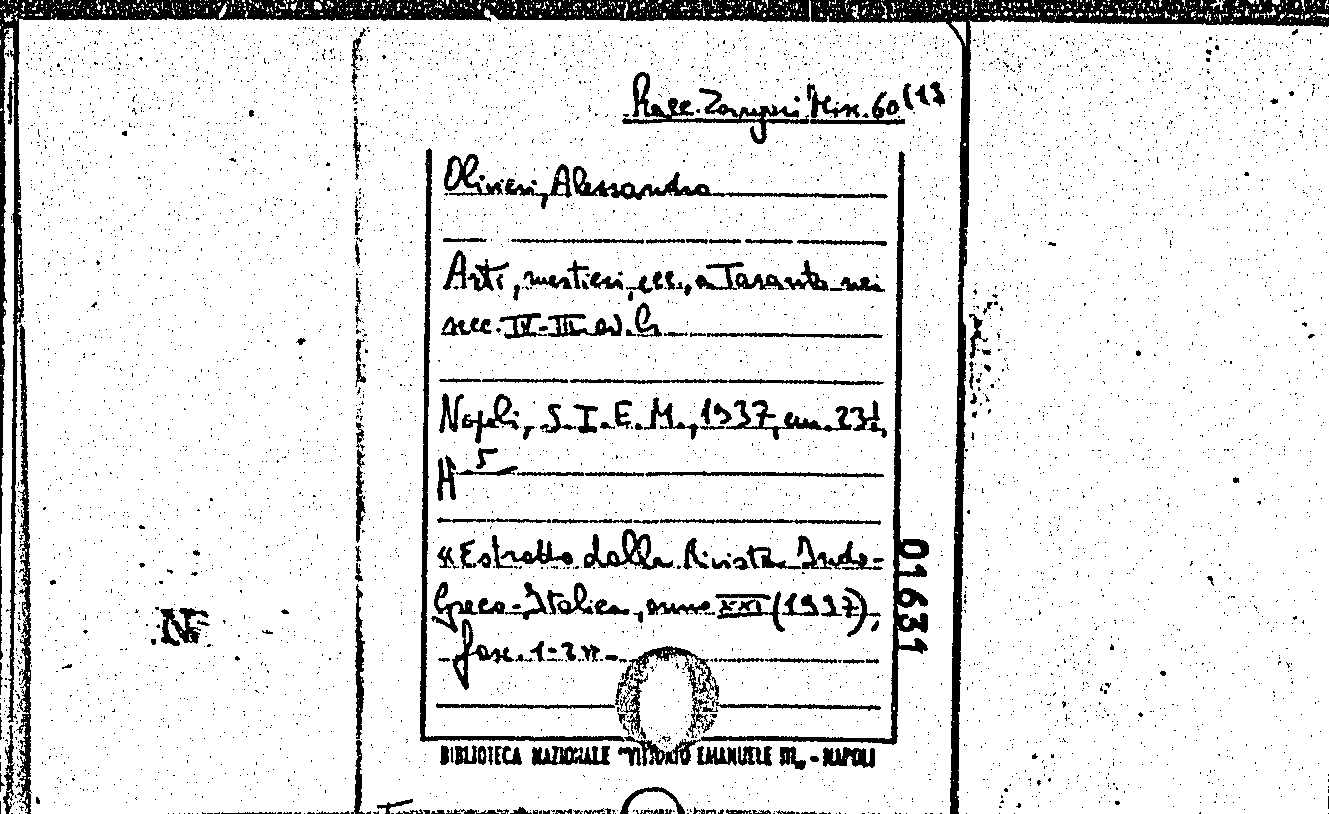 Racc. Zangari Misc. 60(13
Olivieri, Alessandro
Arti, mestieri, ecc., a Taranto nei
secc. IV-III av. C.
Napoli, S.I.E.M., 1937, cm. 23½,
«Estratto dalla Rivista Indo-
Greco-Italica, anno XXI (1937),
fasc. 1-2».
01631
N
BIBLIOTECA NAZIONALE "VITTORIO EMANUELE III" - NAPOLI